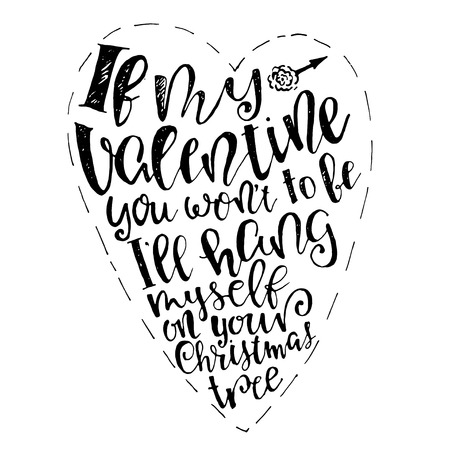 If my
Valentine
you won't to be
I'll hang
myself
on your
Christmas
tree